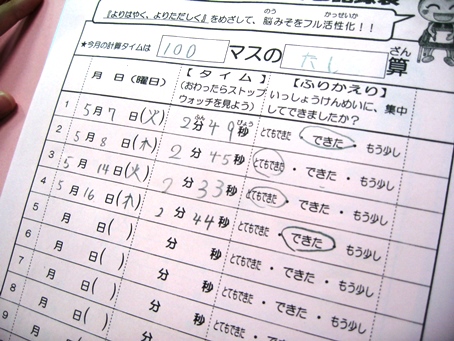 『よりはやく、よりただしく』をめざして、脳みそをフル活性化！！
のう かっせいか
★今月の計算タイムは 100 マスの たし 算
ざん
月 日（曜日） 【タイム】 【ふりかえり】
（おわったらストップウォッチを見よう） いっしょうけんめいに、集中してできましたか？
1 5月7日(火) 2分49秒 とてもできた・できた・もう少し
ふん びょう
2 5月8日(木) 2分45秒 とてもできた・できた・もう少し
3 5月14日(火) 2分33秒 とてもできた・できた・もう少し
4 5月16日(木) 2分44秒 とてもできた・できた・もう少し
5 月 日( ) 分 秒 とてもできた・できた・もう少し
6 月 日( ) 分 秒 とてもできた・できた・もう少し
7 月 日( ) 分 秒 とてもできた・できた・もう少し
8 月 日( ) 分 秒 とてもできた・できた・もう少し
9